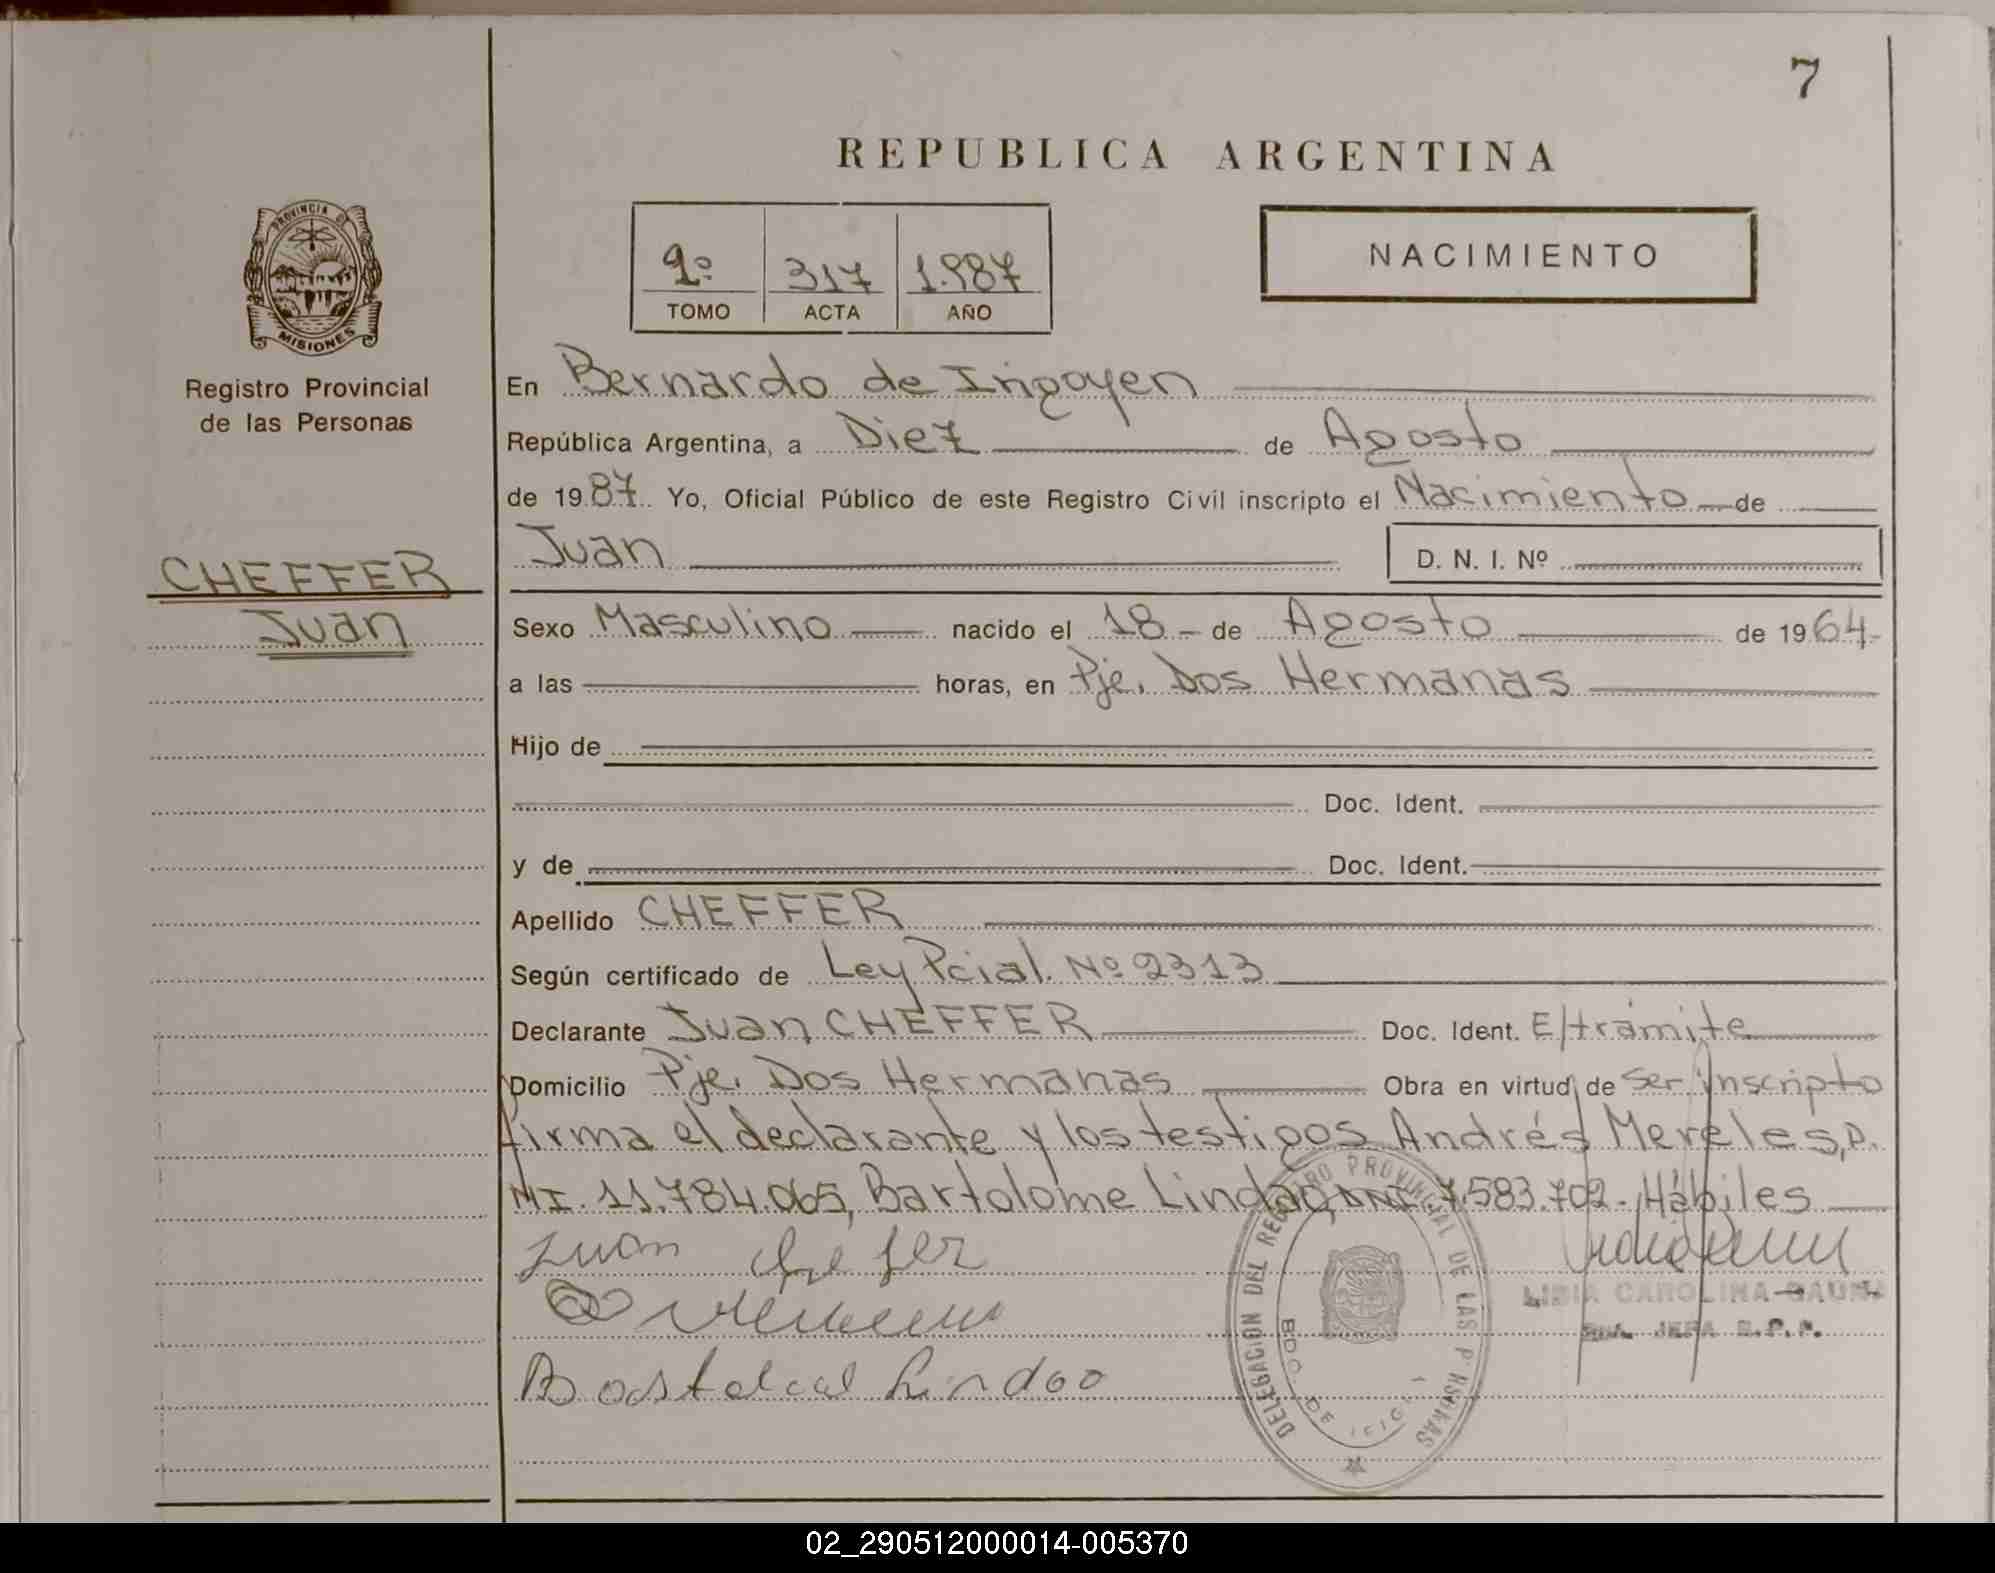 7
REPUBLICA ARGENTINA
PROVINCIA DE
MISIONES
Registro Provincial
de las Personas
1º 317 1.987
TOMO ACTA AÑO
NACIMIENTO
En Bernardo de Irigoyen
República Argentina, a Diez de Agosto
de 1987. Yo, Oficial Público de este Registro Civil inscripto el Nacimiento de
Juan D. N. I. Nº
CHEFFER
Juan
Sexo Masculino nacido el 18 - de Agosto de 1964-
a las horas, en Pje. Dos Hermanas
Hijo de
Doc. Ident.
y de Doc. Ident.
Apellido CHEFFER
Según certificado de Ley Pcial. Nº 2313
Declarante Juan CHEFFER Doc. Ident. E/trámite
Domicilio Pje. Dos Hermanas Obra en virtud de ser inscripto
firma el declarante y los testigos Andrés Mereles, D.
MI. 11.784.065, Bartolome Lindao, DNI. 7.583.702.- Hábiles
Juan Chefer
LIDIA CAROLINA
JEFA R.P.P.
Lindoo
DELEGACION DEL REGISTRO PROVINCIAL DE LAS P RSONAS
BDO DE
02_290512000014-005370